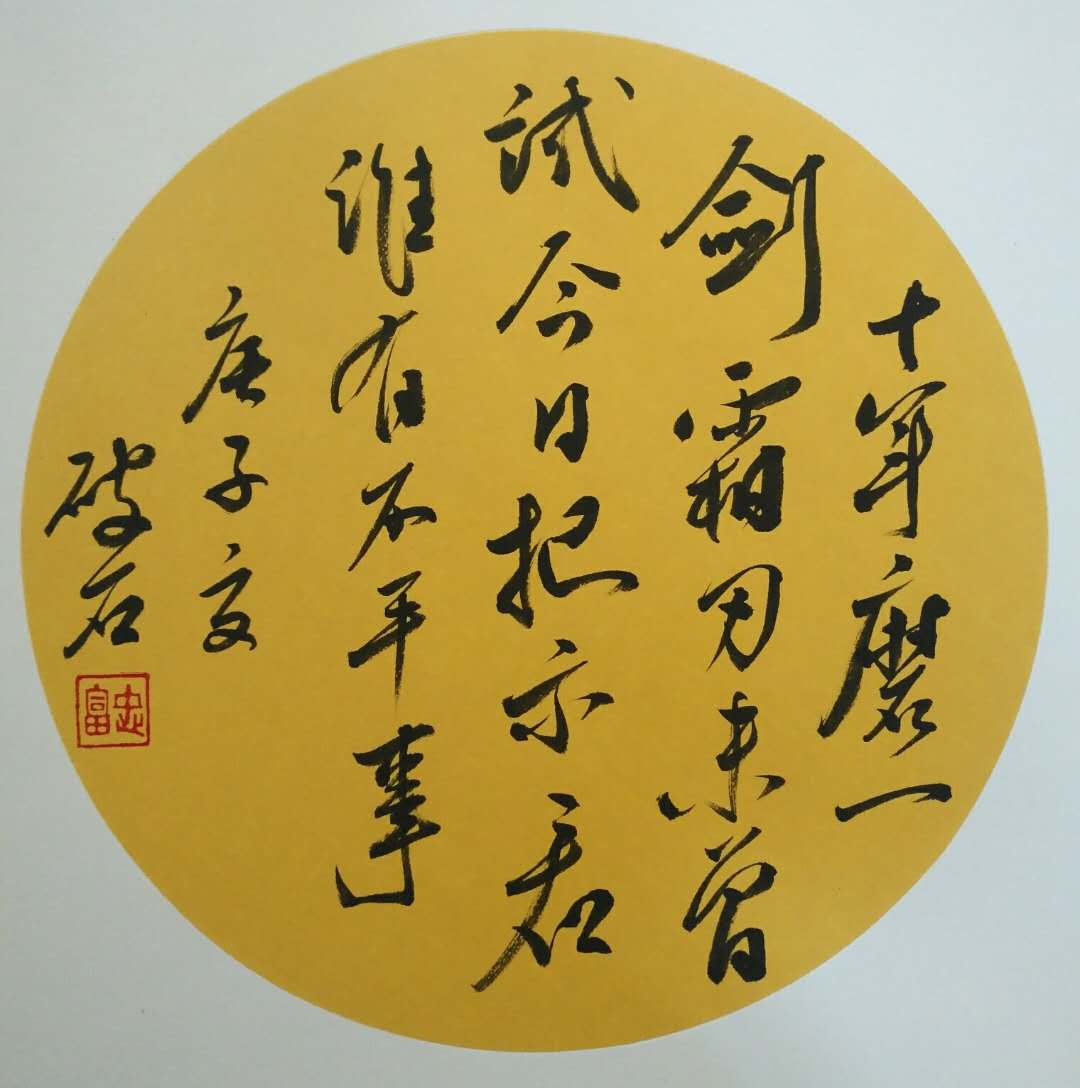 十年磨一
剑霜刃未曾
试今日把示君
谁有不平事
庚子夏
破石
忠富